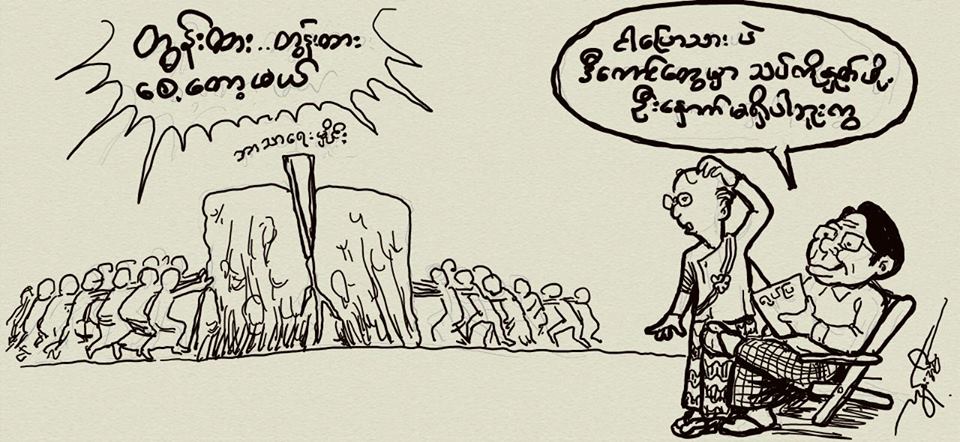 တွန်းထား..တွန်းထား
စေ့တော့မယ်
ငါပြောသားပဲ
ဒီကောင်တွေမှာ သပ်ကိုနှုတ်ဖို့
ဦးနှောက်မရှိပါဘူးကွ
ဘာသာရေးမှိုင်း